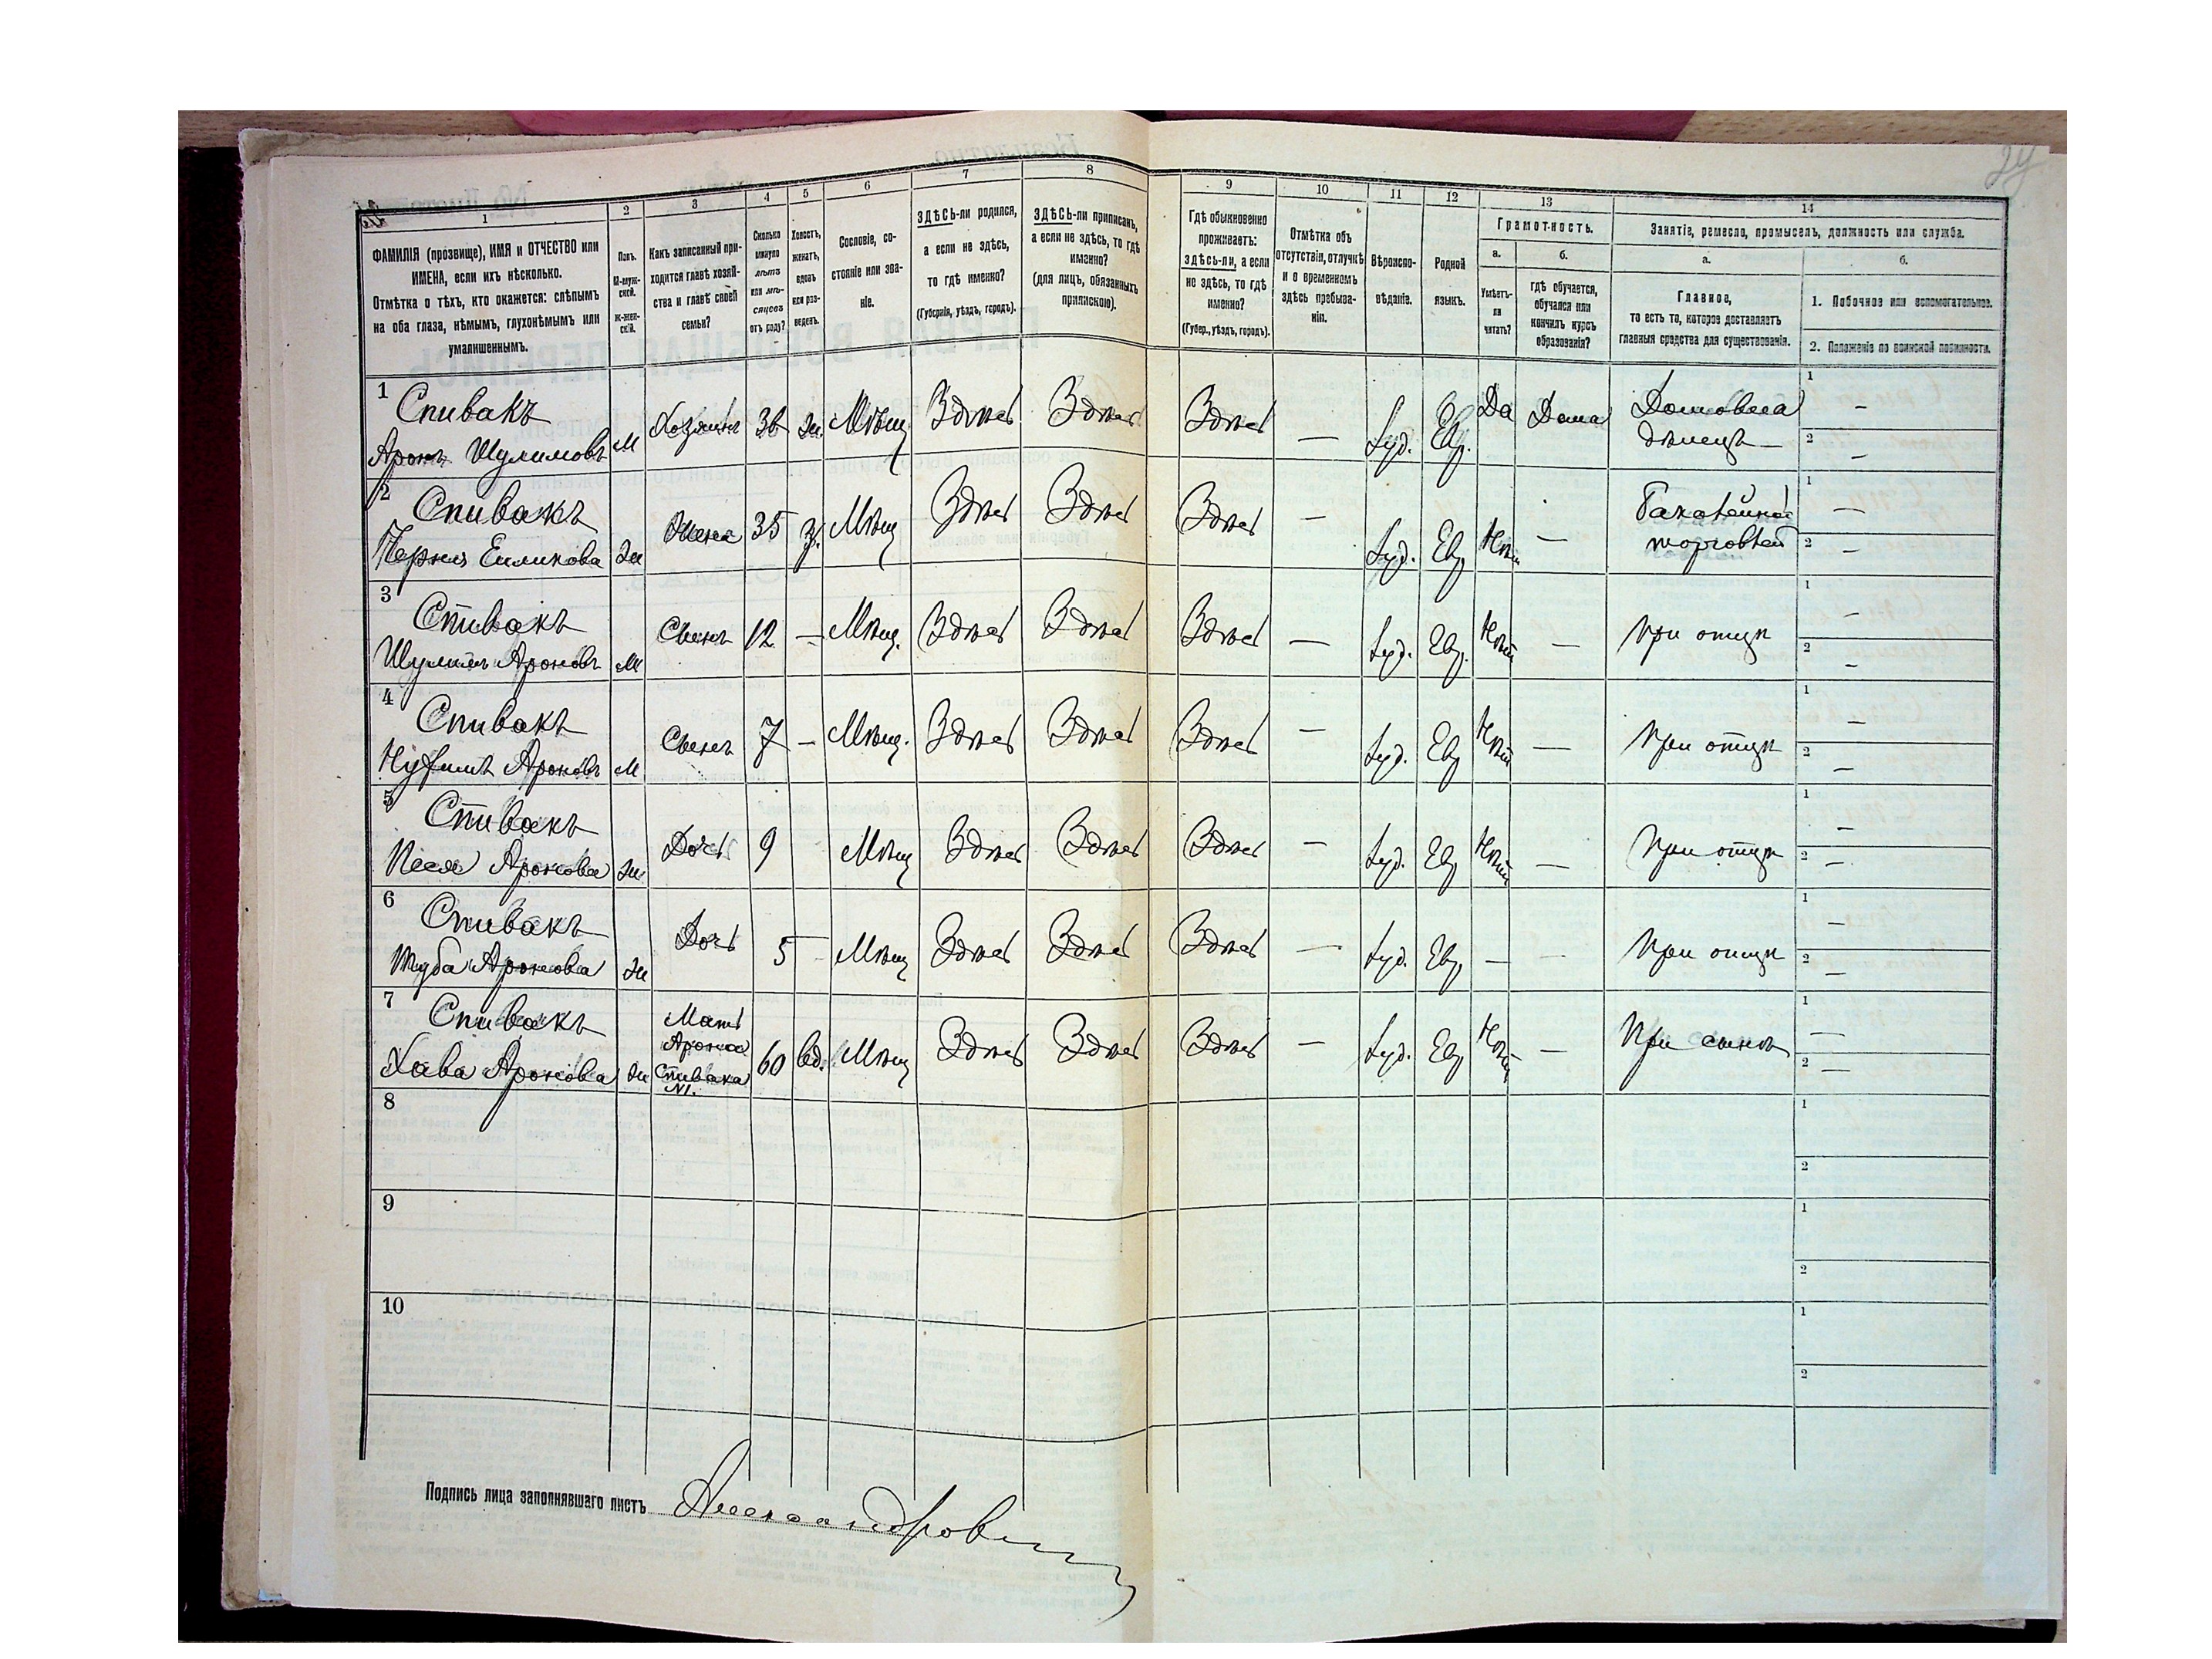 24
1
2
3
4
5
6
7
8
9
10
11
12
13
14
ФАМИЛІЯ (прозвище), ИМЯ и ОТЧЕСТВО или
ИМЕНА, если ихъ нѣсколько.
Отмѣтка о тѣхъ, кто окажется: слѣпымъ
на оба глаза, нѣмымъ, глухонѣмымъ или
умалишеннымъ.
Полъ.
М-муж-
ской.
Ж-жен-
скій.
Какъ записанный при-
ходится главѣ хозяй-
ства и главѣ своей
семьи?
Сколько
минуло
лѣтъ
или мѣ-
сяцевъ
отъ роду?
Холостъ,
женатъ,
вдовъ
или раз-
веденъ.
Сословіе, со-
стояніе или зва-
ніе.
ЗДѢСЬ-ли родился,
а если не здѣсь,
то гдѣ именно?
(Губернія, уѣздъ, городъ).
ЗДѢСЬ-ли приписанъ,
а если не здѣсь, то гдѣ
именно?
(для лицъ, обязанныхъ
припискою).
Гдѣ обыкновенно
проживаетъ:
здѣсь-ли, а если
не здѣсь, то гдѣ
именно?
(Губер., уѣздъ, городъ).
Отмѣтка объ
отсутствіи, отлучкѣ
и о временномъ
здѣсь пребыва-
ніи.
Вѣроиспо-
вѣданіе.
Родной
языкъ.
Грамотность.
а.
б.
Умѣетъ-
ли
читать?
гдѣ обучается,
обучался или
кончилъ курсъ
образованія?
Занятіе, ремесло, промыселъ, должность или служба.
а.
б.
Главное,
то есть то, которое доставляетъ
главныя средства для существованія.
1. Побочное или вспомогательное.
2. Положеніе по воинской повинности.
1 Спивакъ
Аронъ Шулимовъ М Хозяинъ 36 Ж. Мѣщ Здѣсь Здѣсь Здѣсь — Іуд. Евр. Да Дома Домовла
дѣлецъ —
1 —
2 —
2 Спивакъ
Перля Ж Жена 35 З. Мѣщ Здѣсь Здѣсь Здѣсь — Іуд. Евр Нѣт — Бакалейная
торговля
1 —
2 —
3 Спивакъ
Шулимъ Ароновъ М Сынъ 12 — Мѣщ. Здѣсь Здѣсь Здѣсь — Іуд. Евр. Нѣт — При отцѣ
1 —
2 —
4 Спивакъ
Ароновъ М Сынъ 7 — Мѣщ. Здѣсь Здѣсь Здѣсь — Іуд. Евр Нѣт — При отцѣ
1 —
2 —
5 Спивакъ
Песя Аронова Ж Дочь 9 Мѣщ Здѣсь Здѣсь Здѣсь — Іуд. Евр Нѣт — При отцѣ
1 —
2 —
6 Спивакъ
Аронова Ж Дочь 5 — Мѣщ Здѣсь Здѣсь Здѣсь — Іуд. Евр — — При отцѣ
1 —
2 —
7 Спивакъ
Хава Аронова Ж Мать
Арона
Спивака
№1. 60 вд. Мѣщ Здѣсь Здѣсь Здѣсь — Іуд. Евр Нѣт — При сынѣ
1 —
2 —
8
1
2
9
1
2
10
1
2
Подпись лица заполнявшаго листъ